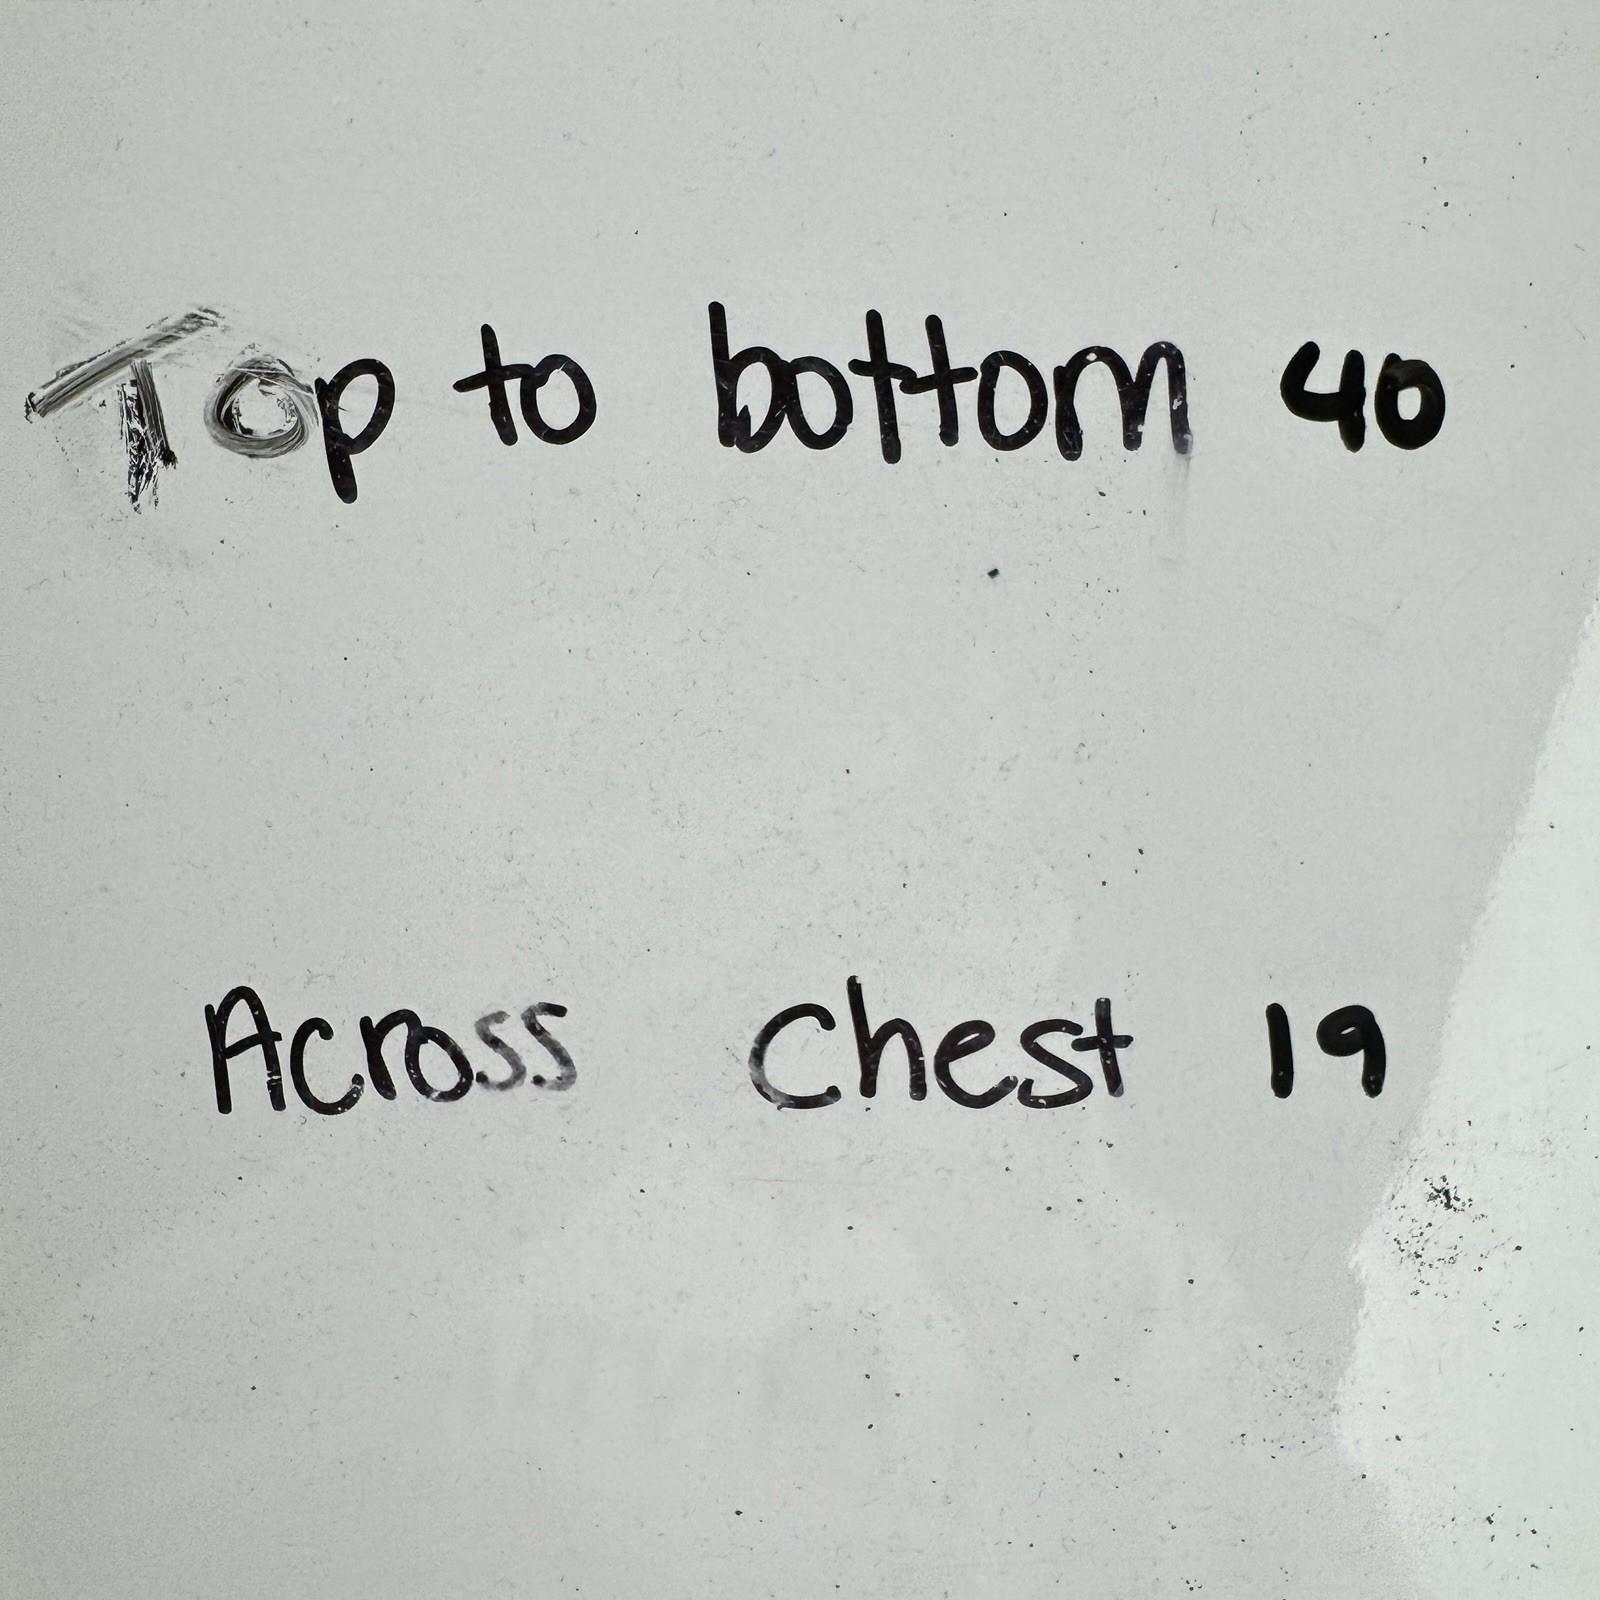 Top to bottom 40
Across Chest 19